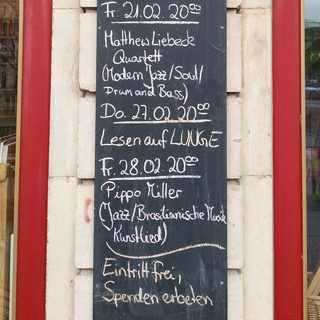 Fr. 21.02. 20⁰⁰
Matthew Liebeck
Quartett
(Modern Jazz/Soul/
Drum and Bass)
Do. 27.02. 20⁰⁰
Lesen auf LUNGE
Fr. 28.02. 20⁰⁰
Pippo Miller
(Jazz/Brasilianische Musik
Kunstlied)
Eintritt frei,
Spenden erbeten